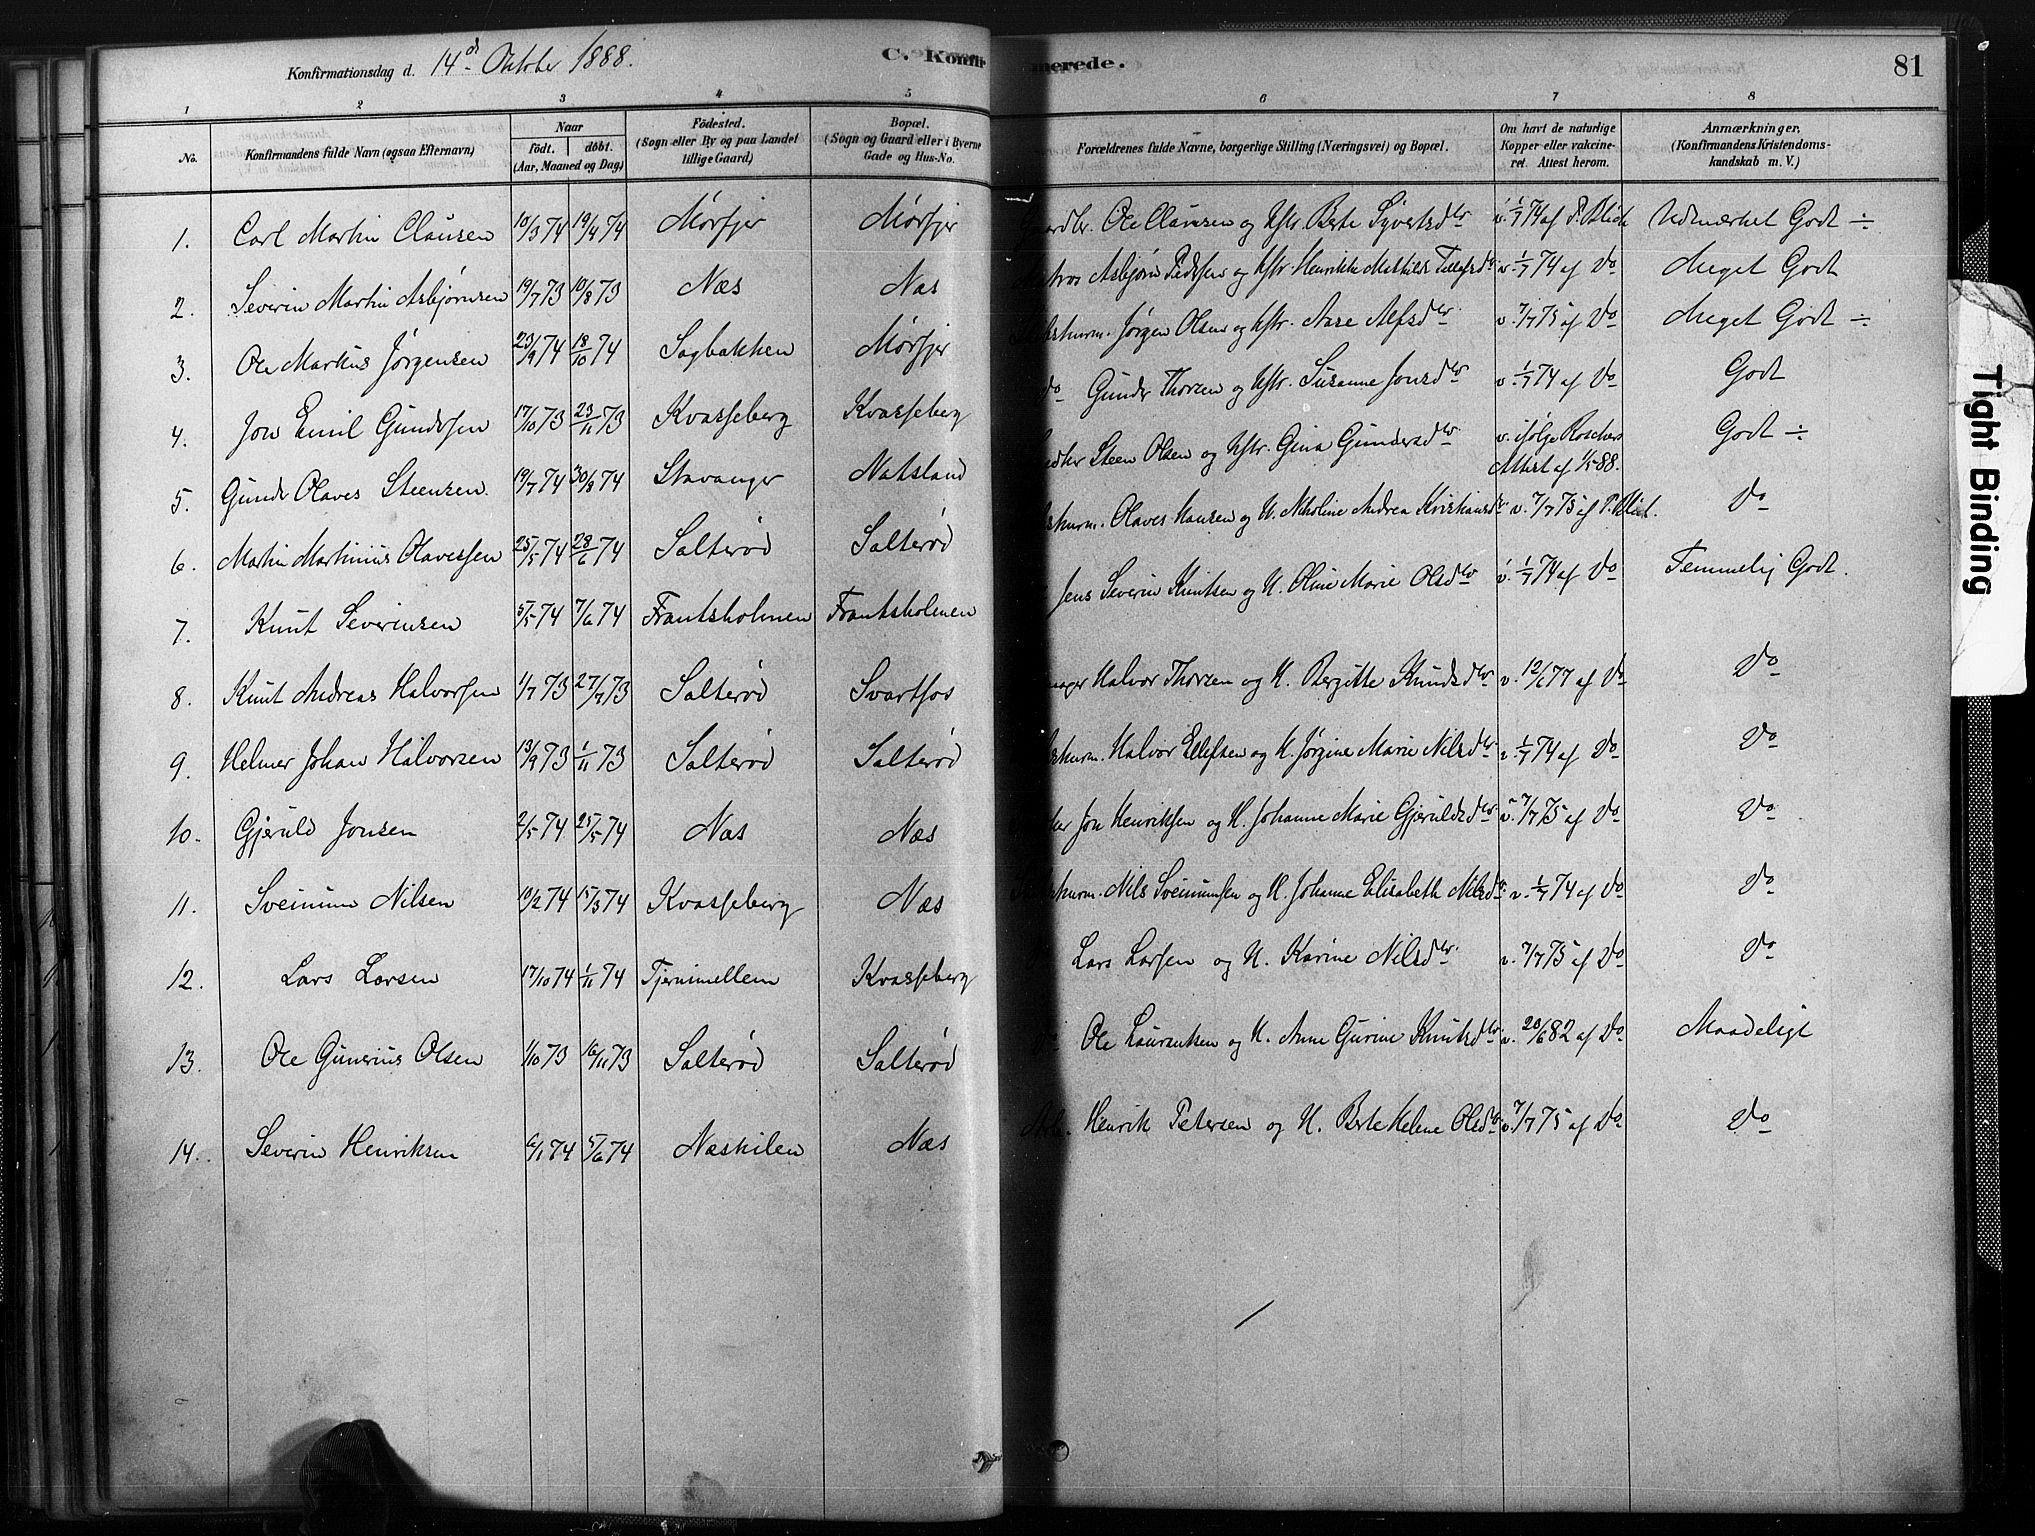 Konfirmationsdag d. 14de Oktober 1888.
C. Konfirmerede.
81
1 2 3 4 5 6 7 8
No. Konfirmandens fulde Navn (ogsaa Efternavn) Naar födt. döbt. (Aar, Maaned og Dag) Födested. (Sogn eller By og paa Landet tillige Gaard) Bopæl. (Sogn og Gaard eller i Byerne Gade og Hus-No. Forældrenes fulde Navne, borgerlige Stilling (Næringsvei) og Bopæl. Om havt de naturlige Kopper eller vakcineret. Attest herom. Anmærkninger. (Konfirmandens Kristendomskundskab m. V.)
1. Carl Martin Clausen 10/3 74 19/4 74 Mørfjer Mørfjer Ole Clausen og Hstr. Berte Syvertsdtr v. 1/7 74 af P. Blich Udmærket Godt ÷
2. Severin Martin Asbjørnsen 19/7 73 10/8 73 Næs Næs Asbjørn Pedersen og Hstr. Henrikke Mathilde v. 1/7 74 af Do Meget Godt
3. Ole Markus Jørgensen 23/9 74 18/10 74 Sagbakken Mørfjer Jørgen Olsen og Hstr. Aase Alfsdtr v. 7/7 75 af Do Meget Godt ÷
4. Jon Emil Gundersen 17/10 73 23/11 73 Kvasseberg Kvasseberg Do Gunder Thorsen og Hstr. Susanne Jonsdtr v. 1/7 74 af Do Godt
5. Gunder Olaves Steensen 19/7 74 30/8 74 Stavanger Natsland Steen Olsen og Hstr. Gina Gundersdtr v. ifølge Roschers Attest af 1/5 88. Godt ÷
6. Martin Martinius Olavessen 25/5 74 28/6 74 Salterød Salterød Olaves Hansen og H. Andrea v. 7/7 75 af P. Blich. Do
7. Knut Severinsen 5/5 74 7/6 74 Frantsholmen Frantsholmen Jens Severin Knutsen og H. Oline Marie Olsdtr v. 1/7 74 af Do Temmelig Godt.
8. Knut Andreas Halvorsen 1/7 73 27/7 73 Salterød Svartfos Halvor Thorsen og H. Bergitte Knudsdtr v. 12/6 77 af Do Do
9. Helmer Johan Halvorsen 13/9 73 1/11 73 Salterød Salterød Halvor Ellefsen og H. Jørgine Marie Nilsdtr v. 1/7 74 af Do Do
10. Gjeruld Jonsen 2/5 74 25/5 74 Næs Næs Jon Henriksen og H. Johanne Marie Gjeruldsdtr v. 7/7 75 af Do Do
11. Sveinum Nilsen 10/2 74 15/3 74 Kvasseberg Næs Nils Sveinumsen og H. Johanne Elisabeth Nilsdtr v. 1/7 74 af Do Do
12. Lars Larsen 17/10 74 1/11 74 Tjernimellem Kvasseberg Lars Larsen og H. Karine Nilsdtr v. 7/7 75 af Do Do
13. Ole Gunerius Olsen 1/10 73 16/11 73 Salterød Salterød Do Ole Laurentsen og H. Anne Gurine Knutsdtr v. 20/6 82 af Do Maadeligt
14. Severin Henriksen 6/1 74 5/6 74 Næskilen Næs Arb. Henrik Petersen og H. Berte Helene Olsdtr v. 7/7 75 af Do Do
Tight Binding